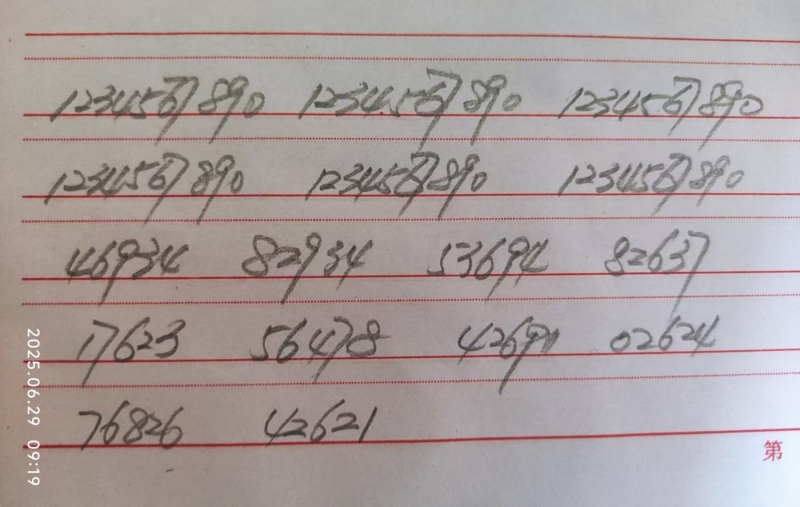 1234567890 1234567890 1234567890
1234567890 1234567890 1234567890
46934 82934 53694 82637
17623 56478 42691 02624
76826 42621
第
2025.06.29 09:19